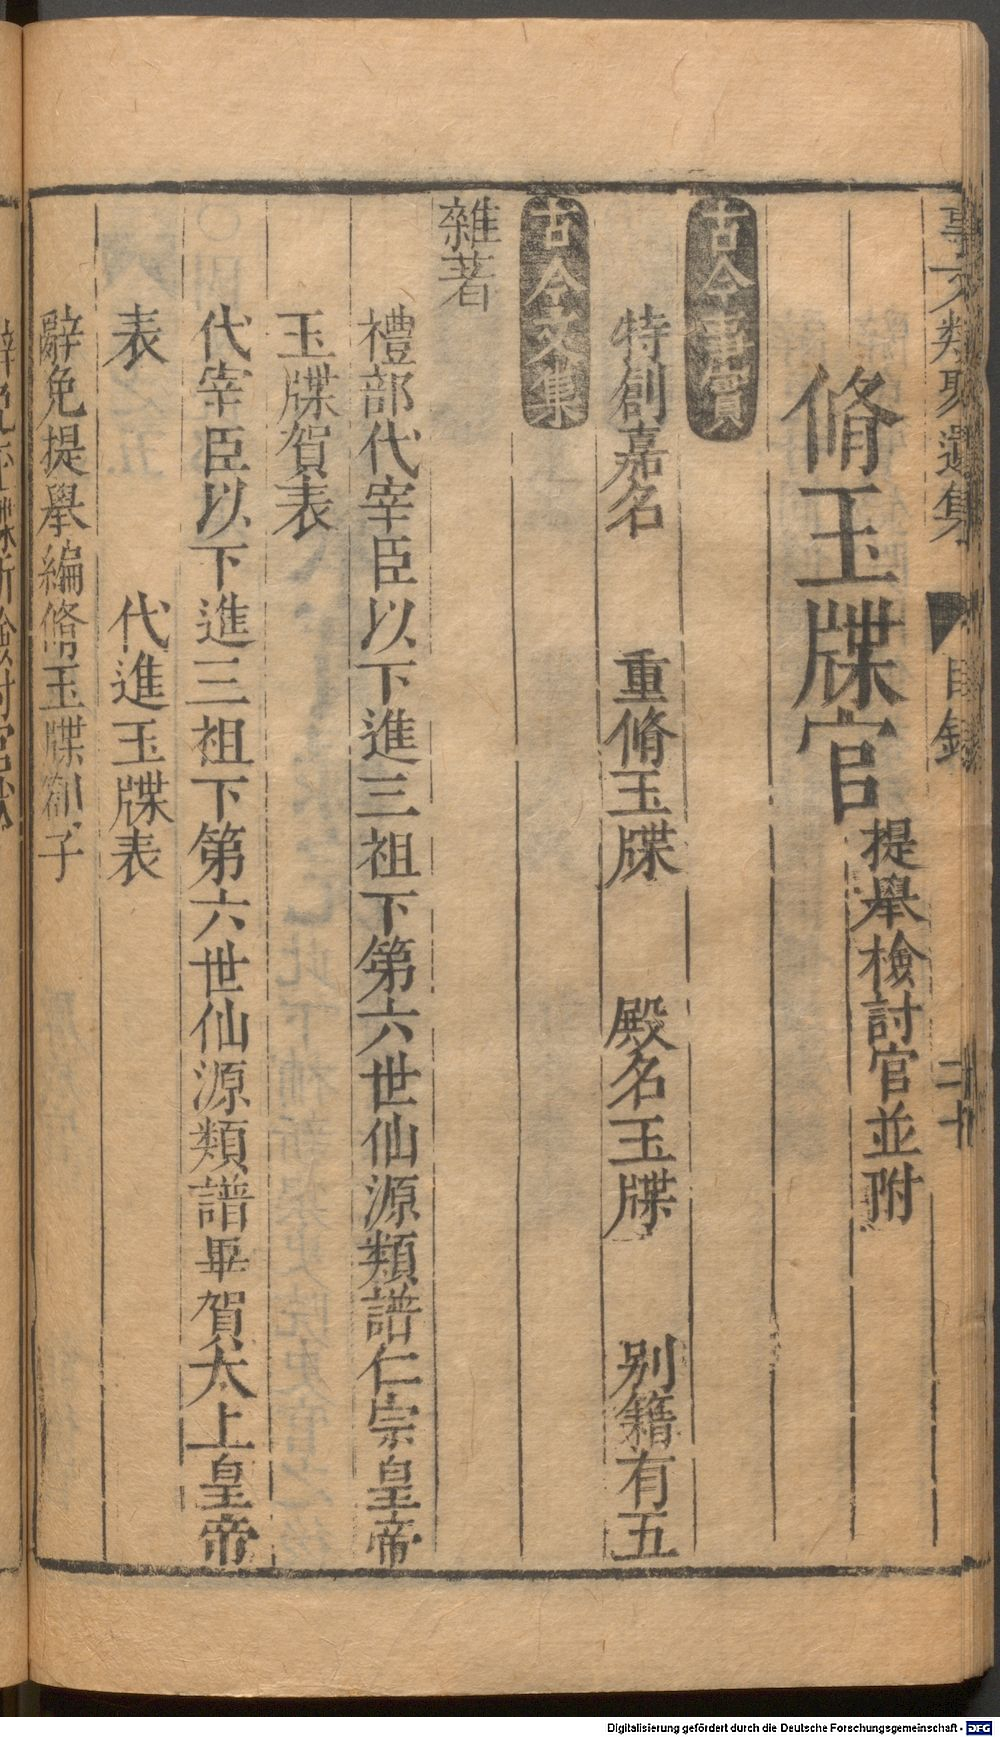 事文類聚遺集
目錄
二十
脩玉牒官
提舉檢討官並附
古今事實
特創嘉名 重脩玉牒 殿名玉牒 别籍有五
古今文集
雜著
禮部代宰臣以下進三祖下第六世仙源類譜仁宗皇帝
玉牒賀表
代宰臣以下進三祖下第六世仙源類譜畢賀太上皇帝
表 代進玉牒表
辭免提舉編脩玉牒劄子
Digitalisierung gefördert durch die Deutsche Forschungsgemeinschaft - DFG